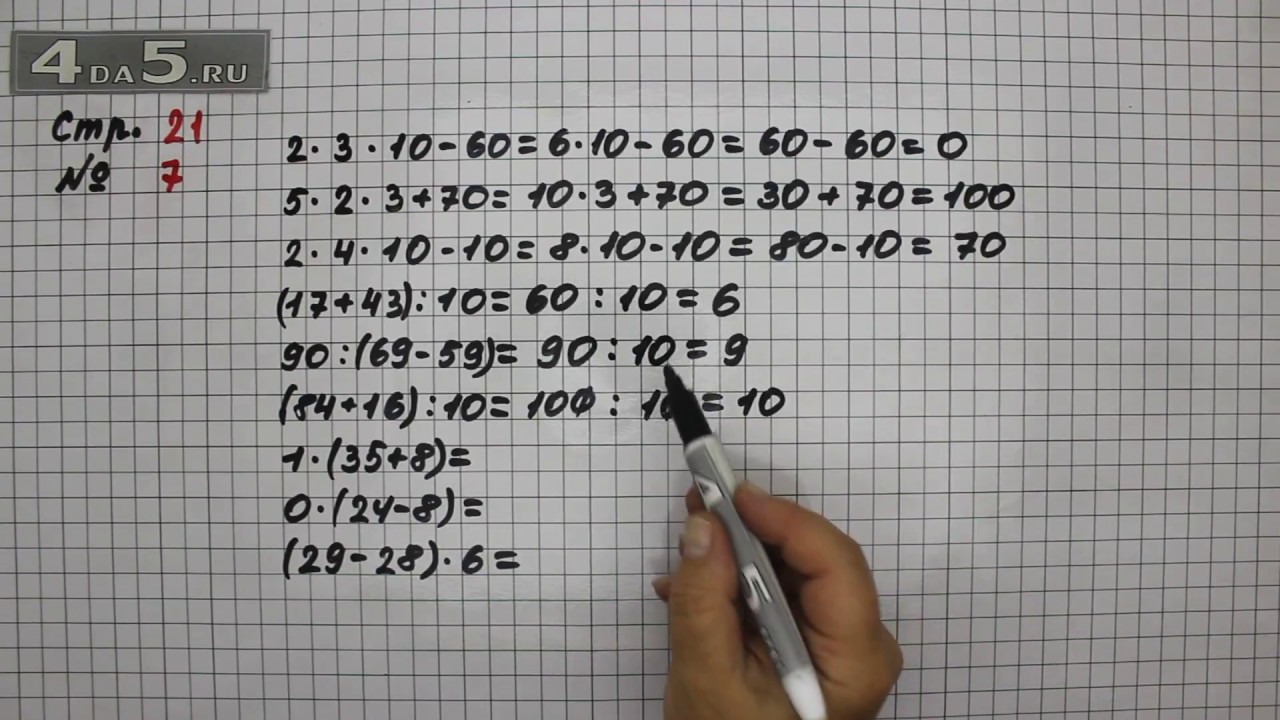 4DA5.RU
Стр. 21
№ 7
2·3·10-60=6·10-60=60-60=0
5·2·3+70=10·3+70=30+70=100
2·4·10-10=8·10-10=80-10=70
(17+43):10=60:10=6
90:(69-59)=90:10=9
(84+16):10=100:10=10
1·(35+8)=
0·(24-8)=
(29-28)·6=